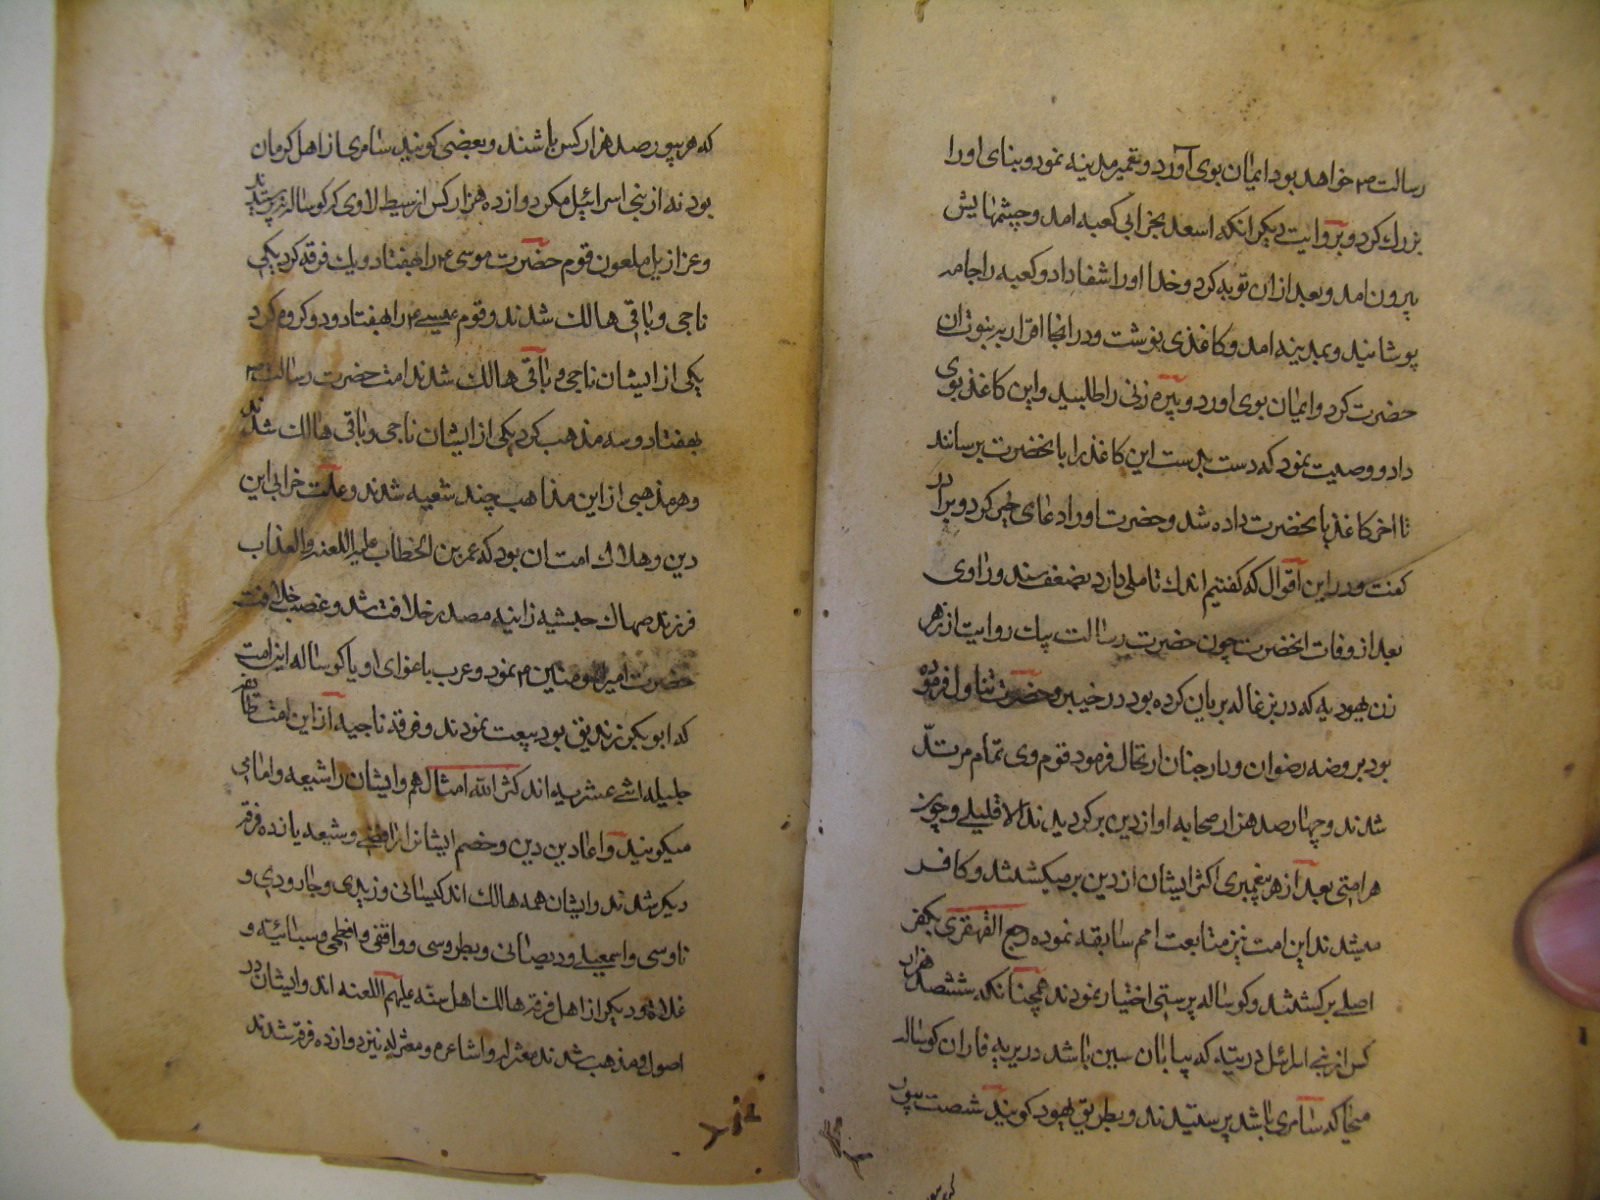 رسالت ص خواهد بود ایمان بوی آورد و تعمیر مدینه نمود و بنای او را
بزرك کرد و بروایت دیکر انکه اسعد بخرابی کعبه امد و چشمهایش
بیرون امد و بعد ازان توبه کرد و خدا او را شفا داد و کعبه را جامه
پوشانید و بمدینه امد و کاغذی نوشت و در انجا اقرار به نبوت ان
حضرت کرد و ایمان بوی اورد و پیره زنی را طلبید و این کاغذ بوی
داد و وصیت نمود که دست بدست این کاغذ را بانحضرت برسانند
تا اخر کاغذ بانحضرت داده شد و حضرت او را دعای خیر کرد و برادر
کفت و در این اقوال که کفتیم اندك تاملی دارد بضعف سند و راوی
بعد از وفات انحضرت چون حضرت رسالت بیك روایت از زهر
زن یهودیه که در بزغاله بریان کرده بود در خیبر و حضرت تناول فرموده
بود بروضه رضوان و بار جنان ارتحال فرمود قوم وی تمام مرتدّ
شدند و چهار صد هزار صحابه او از دین برکردیدند الا قلیلی و چون
هر امتی بعد از هر پیغمبری اکثر ایشان از دین برمیکشتند و کافر
میشدند این امت نیز متابعت امم سابقه نموده رجع القهقری بکفر
اصلی برکشتند و کوساله پرستی اختیار نمودند همچنانکه ششصد هزار
کس از بنی اسرائیل در تیه که بیابان سین باشد در بریه فاران کوساله
میخا که سامری باشد پرستیدند و بطریق یهود کویند شصت پور
که هر پور صد هزار کس باشند و بعضی کویند سامری از اهل کرمان
بود نه از بنی اسرائیل مکر دوازده هزار کس از سبط لاوی که کوساله نپرستیدند
و عزازیل ملعون قوم حضرت موسی ع را هفتاد و یك فرقه کرد یکی
ناجی و باقی هالك شدند و قوم عیسی ع را هفتاد و دو کروه کرد
یکی از ایشان ناجی و باقی هالك شدند امت حضرت رسالت ص
بهفتاد و سه مذهب کرد یکی از ایشان ناجی و باقی هالك شدند
و هر مذهبی از این مذاهب چند شعبه شدند و علت خرابی این
دین و هلاك امت ان بود که عمر بن الخطاب علیه اللعنه والعذاب
فرزند صهاك حبشیه زانیه مصدر خلافت شد و غصب خلافت
حضرت امیر المومنین ع نمود و عرب باغوای او با کوساله این امت
که ابو بکر زندیق بود بیعت نمودند و فرقه ناجیه از این امت طایفه
جلیله اثنی عشریه اند کثر الله امثالهم و ایشان را شیعه و امامی
میکویند و اعادین دین و خصم ایشانرا رافضی و شیعه پانزده فرقه
دیکر شدند و ایشان همه هالك اند کیسانی و زیدی و جارودی و
ناوسی و اسمعیلی و دیصانی و بطروسی و واقفی و افطحی و سبائیه و
غلاة و دیکر از اهل فرقه هالك اهل سنه علیهم اللعنه اند و ایشان در
اصول دو مذهب شدند معتزله و اشاعره و معتزله نیز دوازده فرقه شدند